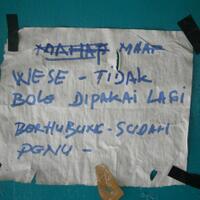 MAAF
WESE - TIDAK
BOLE DIPAKAI LAGI
BERHUBUNG - SUDAH
PENU -